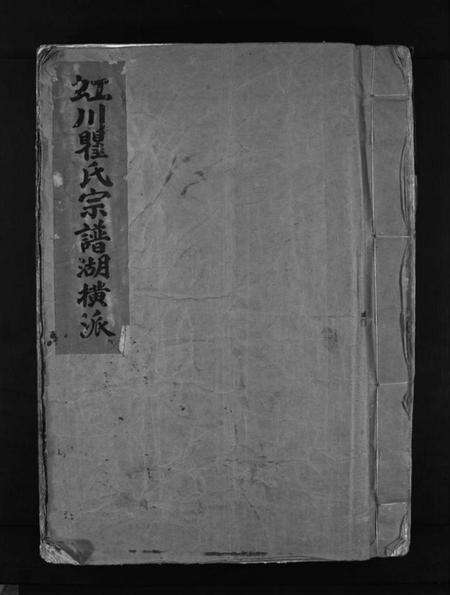 虹川瞿氏宗譜湖横派